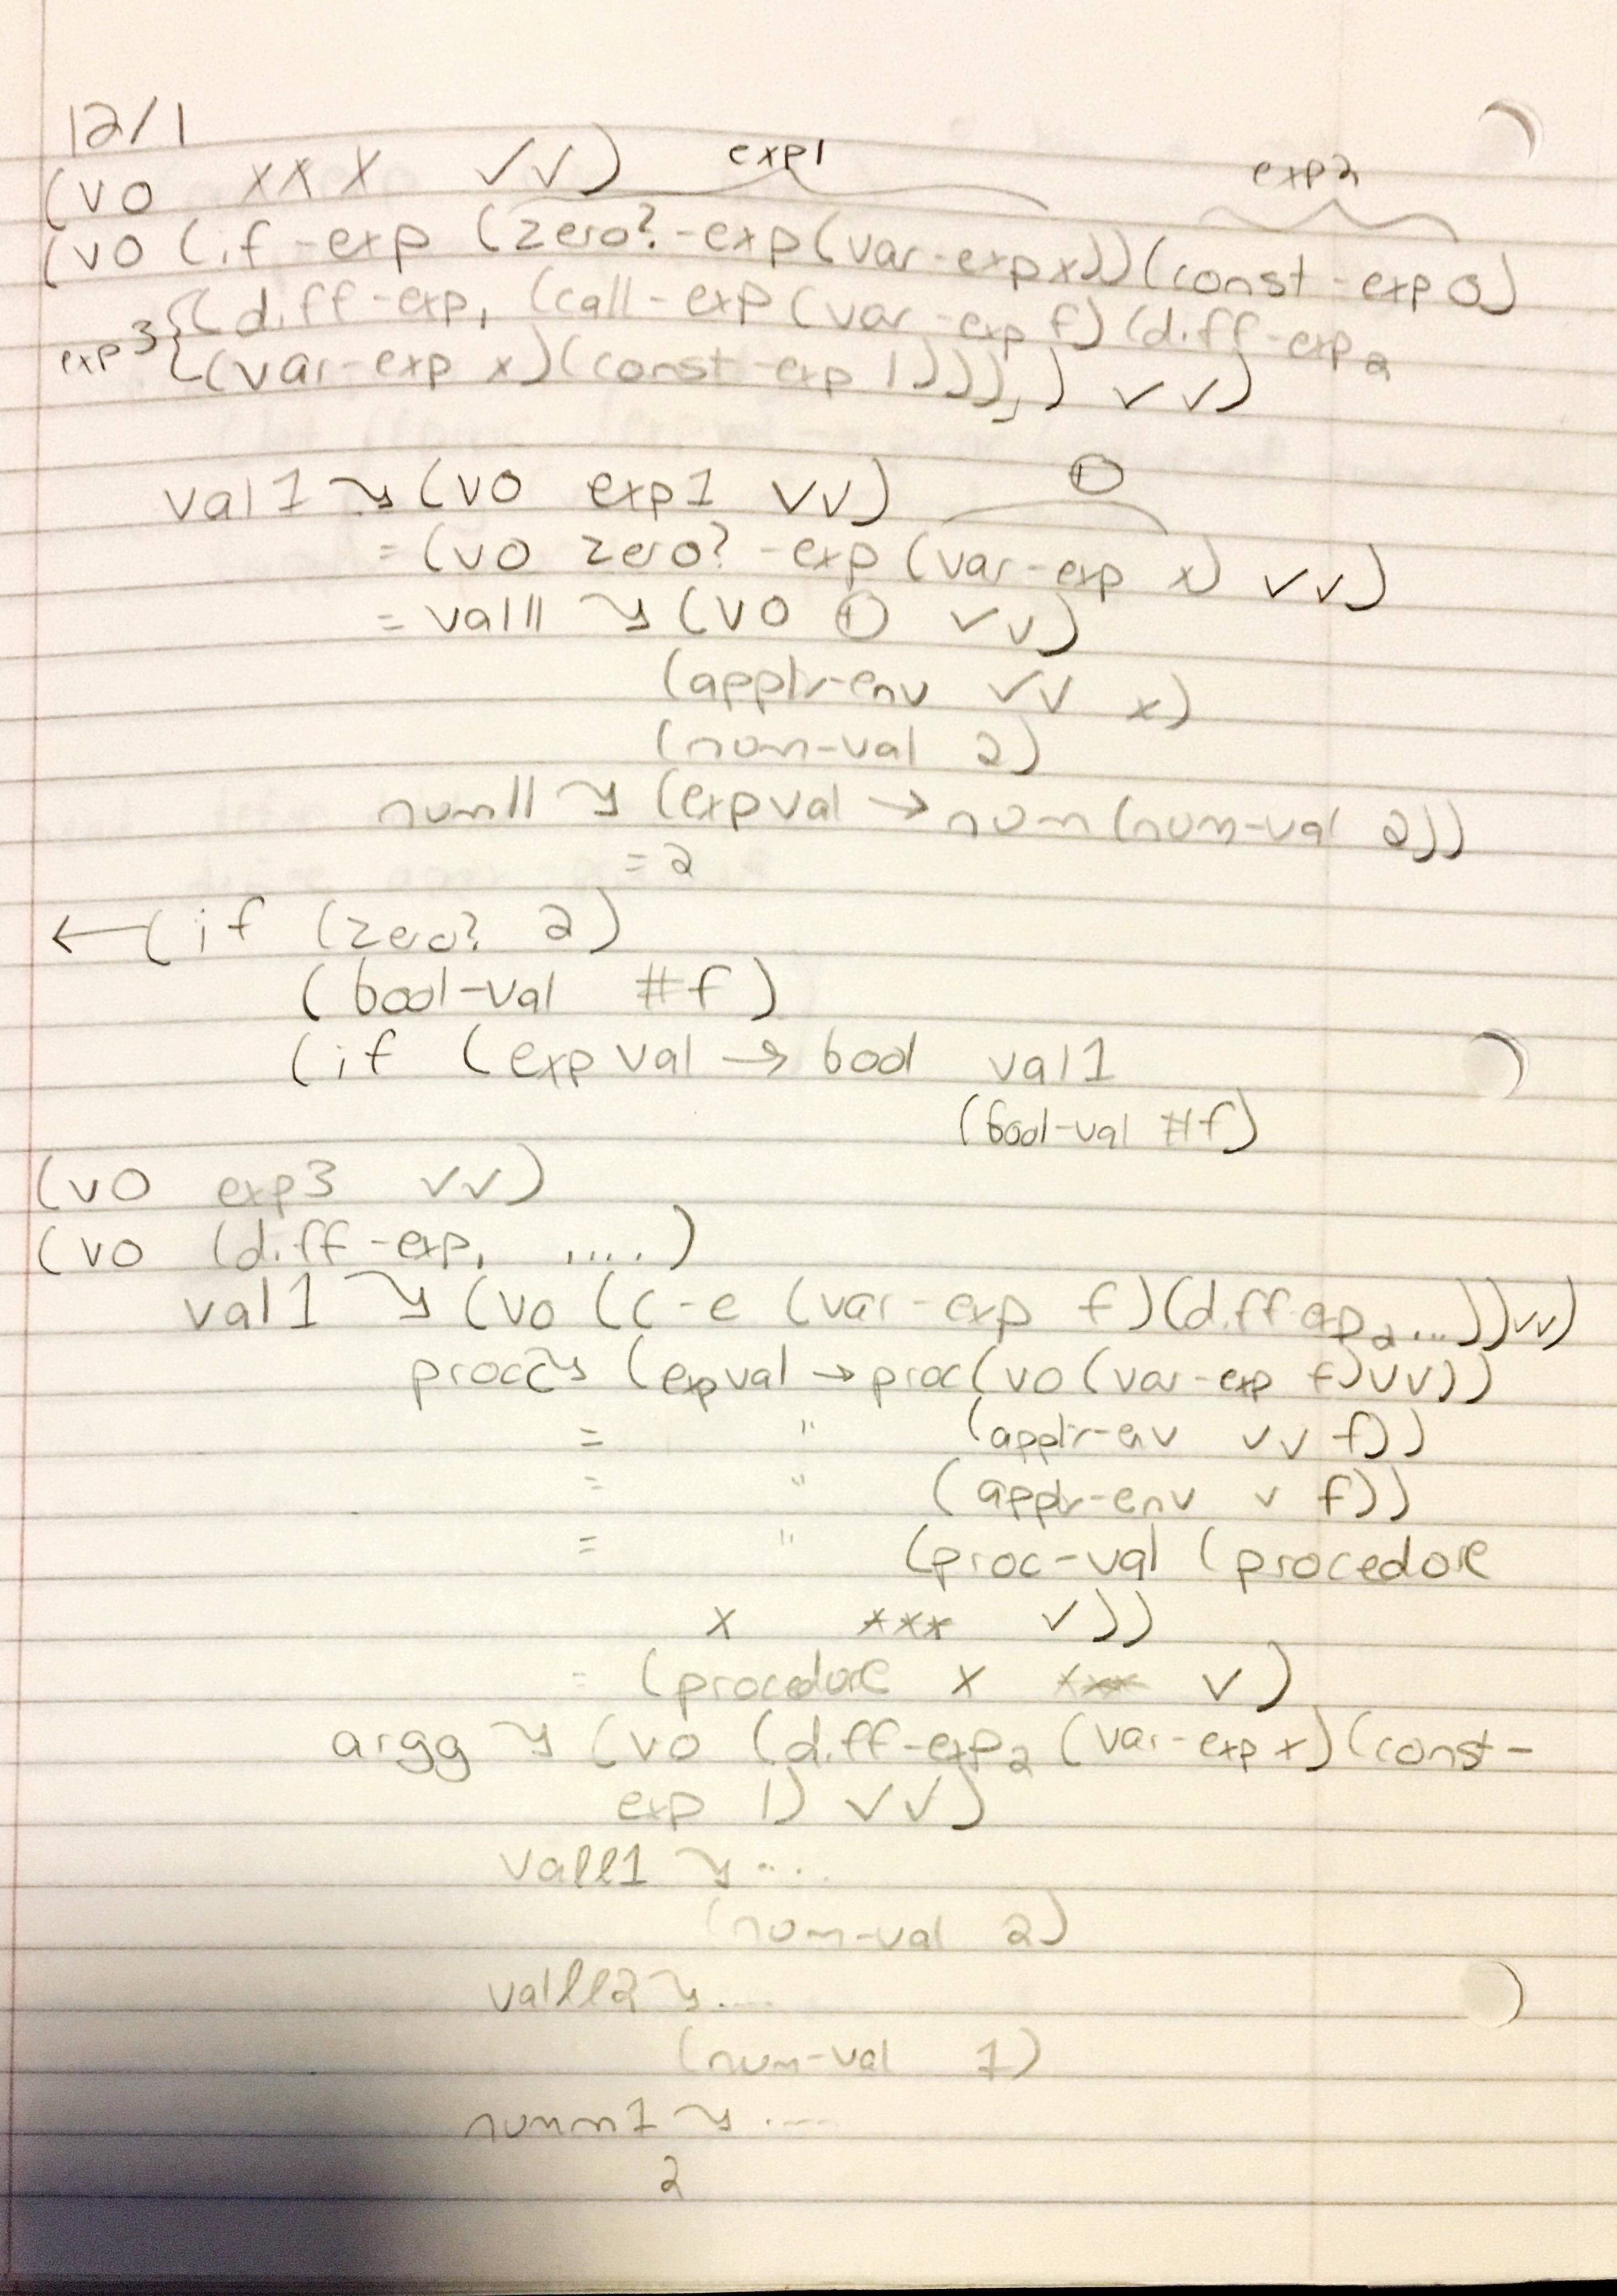 12/1
(vo xxx vv) exp1 exp2
(vo (if-exp (zero?-exp(var-exp x))(const-exp 0)
exp3 {(diff-exp₁ (call-exp (var-exp f)(diff-exp₂
(var-exp x)(const-exp 1)))₁) vv)
val1 ↘ (vo exp1 vv) ①
= (vo zero?-exp (var-exp x) vv)
= val11 ↘ (vo ① vv)
(apply-env vv x)
(num-val 2)
num11 ↘ (expval → num(num-val 2))
= 2
← (if (zero? 2)
(bool-val #f)
(if (expval → bool val1
(bool-val #f)
(vo exp3 vv)
(vo (diff-exp₁ .....)
val1 ↘ (vo ((c-e (var-exp f)(diff-exp₂...))vv)
procc ↘ (expval → proc(vo(var-exp f)vv))
= " (apply-env vv f))
= " (apply-env v f))
= " (proc-val (procedure
x *** v))
= (procedure x *** v)
argg ↘ (vo (diff-exp₂ (var-exp x)(const-
exp 1) vv)
valll1 ↘ ...
(num-val 2)
valll2 ↘ ....
(num-val 1)
numm1 ↘ ....
2